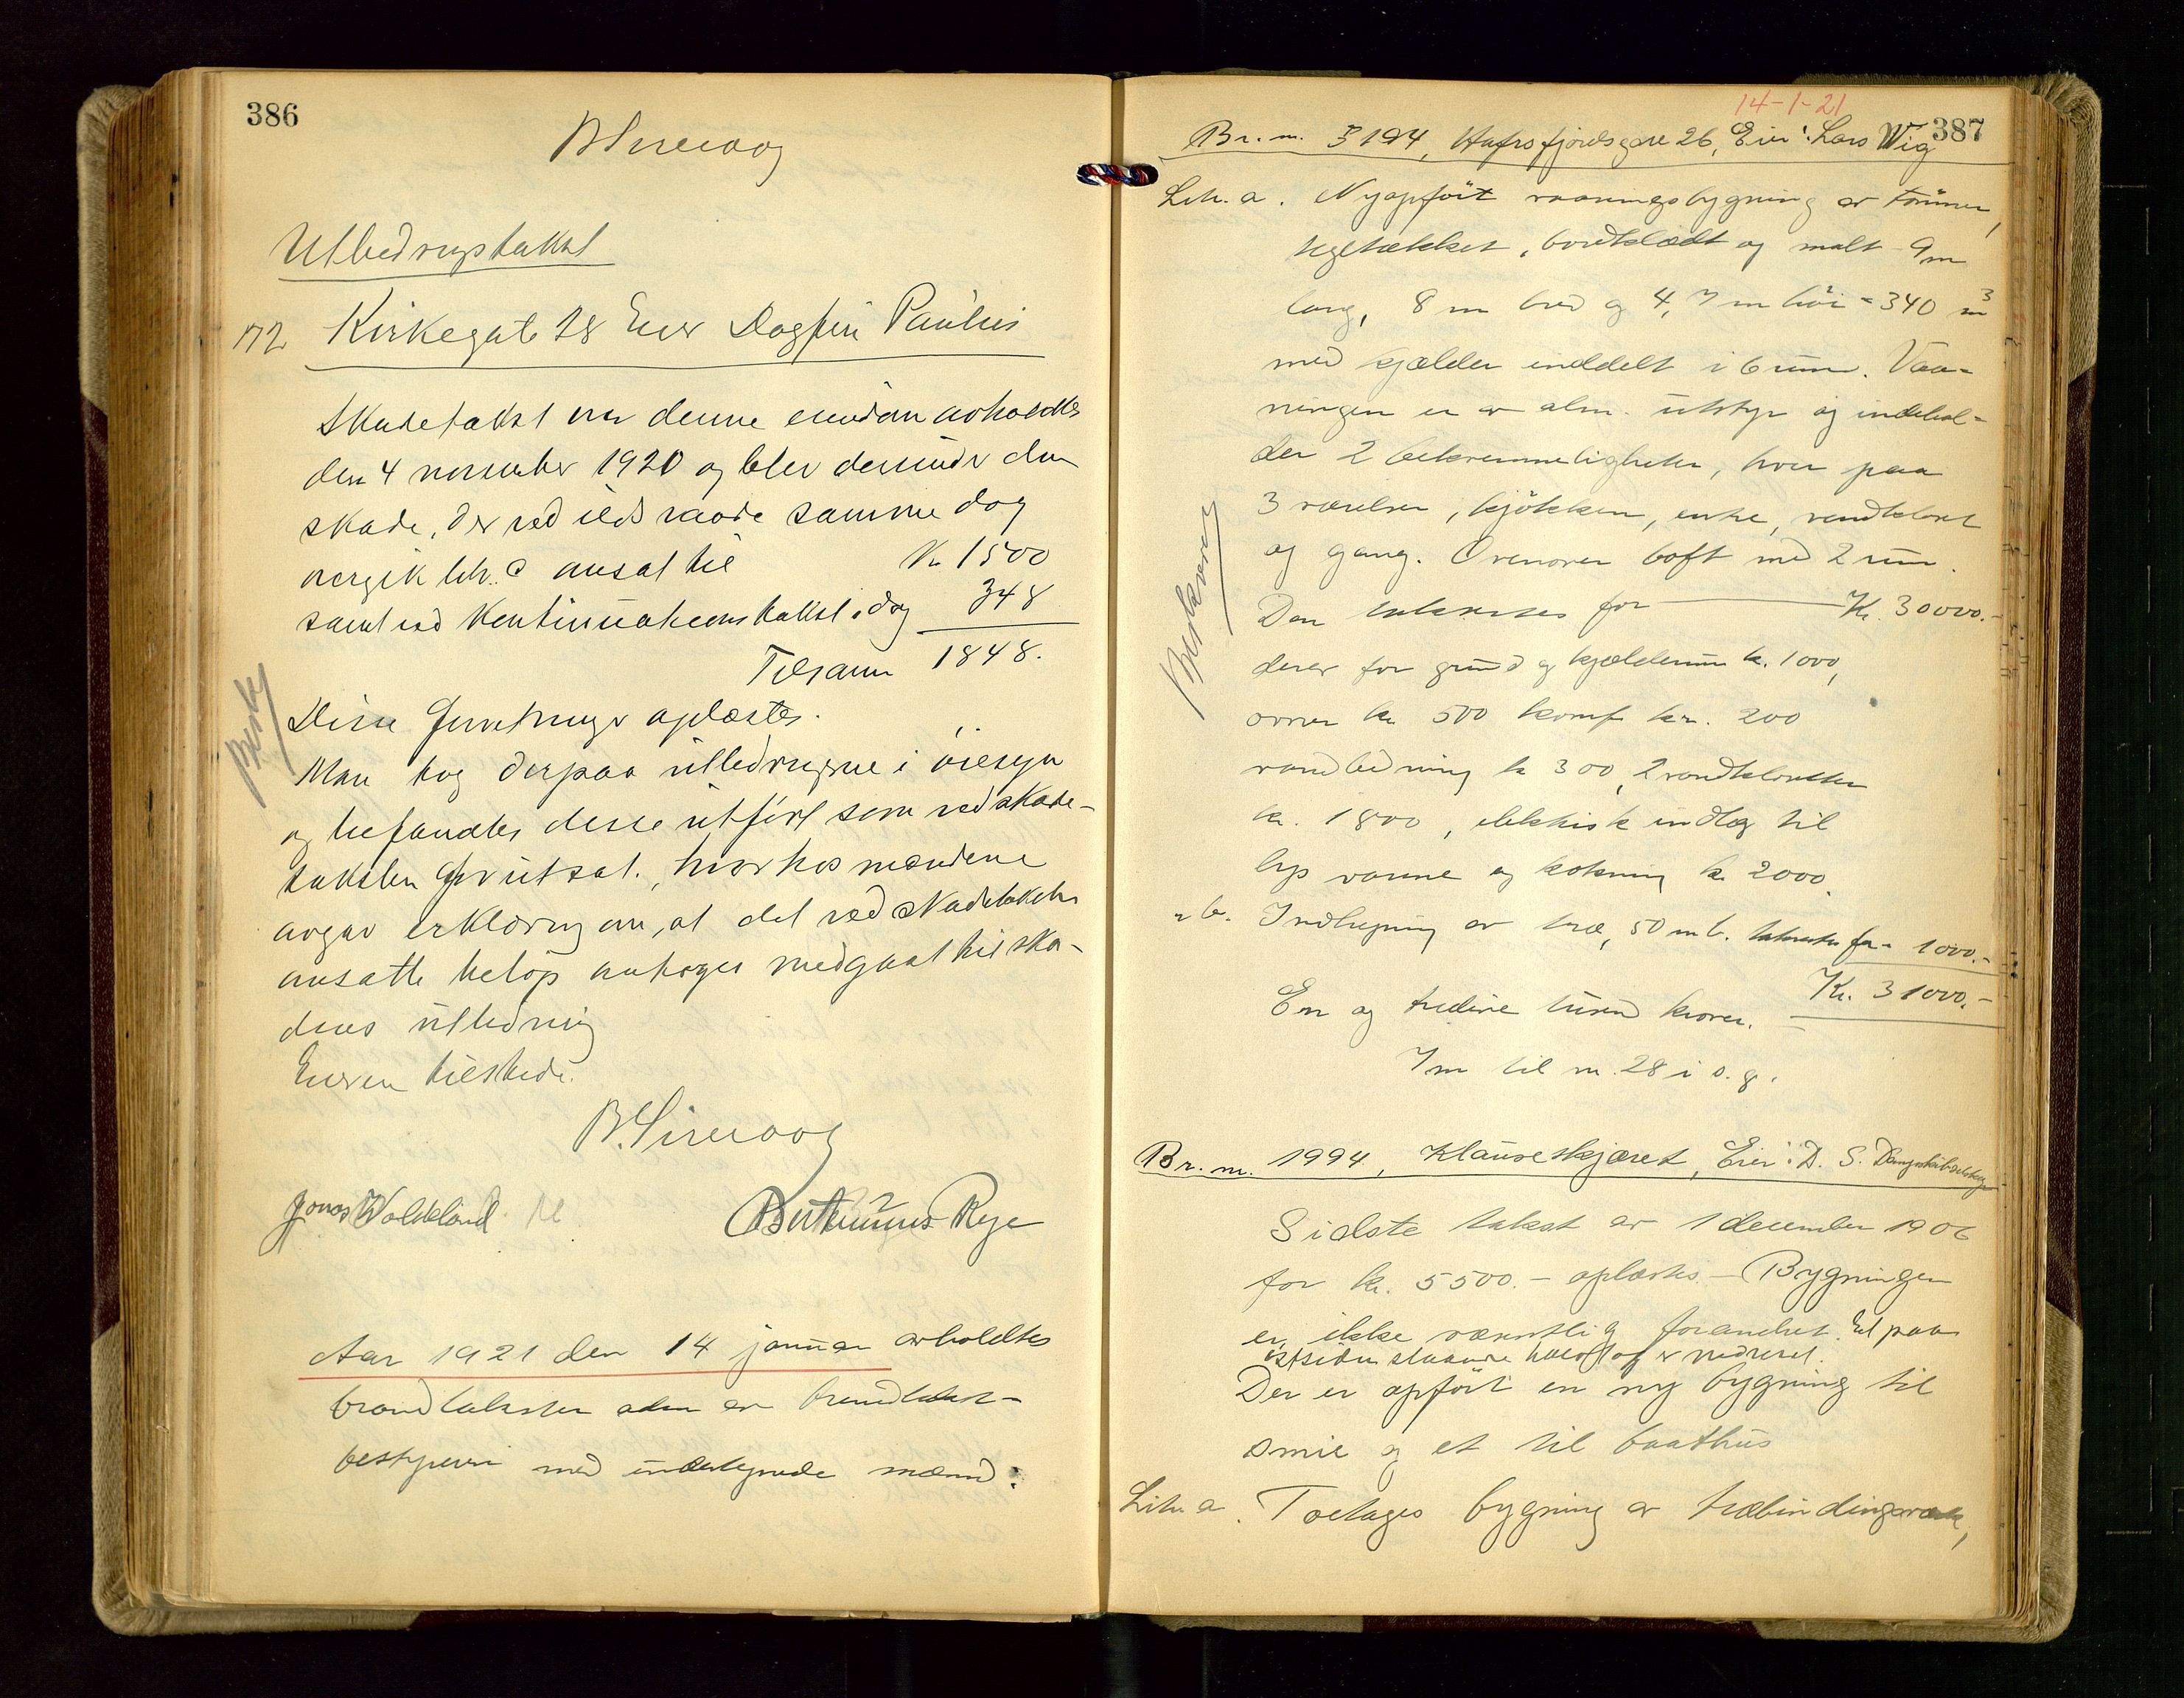 386
B Sirevaag
Utbedringstakst
172 Kirkegate 28 Eier Dagfin Paulus
Skadetakst over denne eiendom avholdtes
den 4 november 1920 og blev derunder den
skade, der ved ildsvaade samme dag
overgik litr. a ansat til Kr 1500
samt ved Kontinuationstakst idag 348
Tilsamm 1848.
Besk
Disse forretninger oplæstes.
Man tog derpaa utbedringerne i øiesyn
og befandtes disse utført som ved skade-
taksten forutsat, hvorhos mændene
avgav erklæring om, at det ved skadetaksten
ansatte beløp antages medgaat til ska-
dens utbedring
Eieren tilstede.
B. Sirevaag
Jonas Waldeland
Berthinius Rege
Aar 1921 den 14 januar avholdtes
brandtakster av brandtakst-
bestyreren med undertegnede mænd:
14-1-21
387
Br. nr. 3194, Hafrsfjordsgate 26, Eier: Lars Wig
Litr. a. Nyopført vaaningsbygning av tømmer,
tegltækket, bordklædt og malt 9 m
lang, 8 m bred og 4,7 m høi = 340 m³
med kjælder inddelt i 6 rum. Vaa-
ningen er av alm. utstyr og indehol-
der 2 bekvemmeligheter, hver paa
3 værelser, kjøkken, entre, vandkloset
og gang. Ovenover loft med 2 rum.
Den taksertes for Kr. 30000.-
Beskrevet
derav for grund og kjælderrum kr. 1000,
ovner kr 500 komf kr. 200
vandledning kr 300, 2 vandklosetter
kr. 1800, elektrisk indlæg til
lys varme og kokning kr 2000.
" b. Indhegning av træ, 50 m l. taksertes for - 1000.-
Kr. 31000.-
En og tredive tusen kroner.
7 m til nr. 28 i s. g.
Br. nr. 1994, Klauseskjæret, Eier: D. S. Dampskibsselskap
Sidste takst av 1 december 1906
for kr. 5500.- oplæstes. - Bygningen
er ikke væsentlig forandret. Et paa
østsiden staaende halvtag er nedrevet.
Der er opført en ny bygning til
smie og et til baathus
Litr. a. Toetages bygning av træbindingsværk,